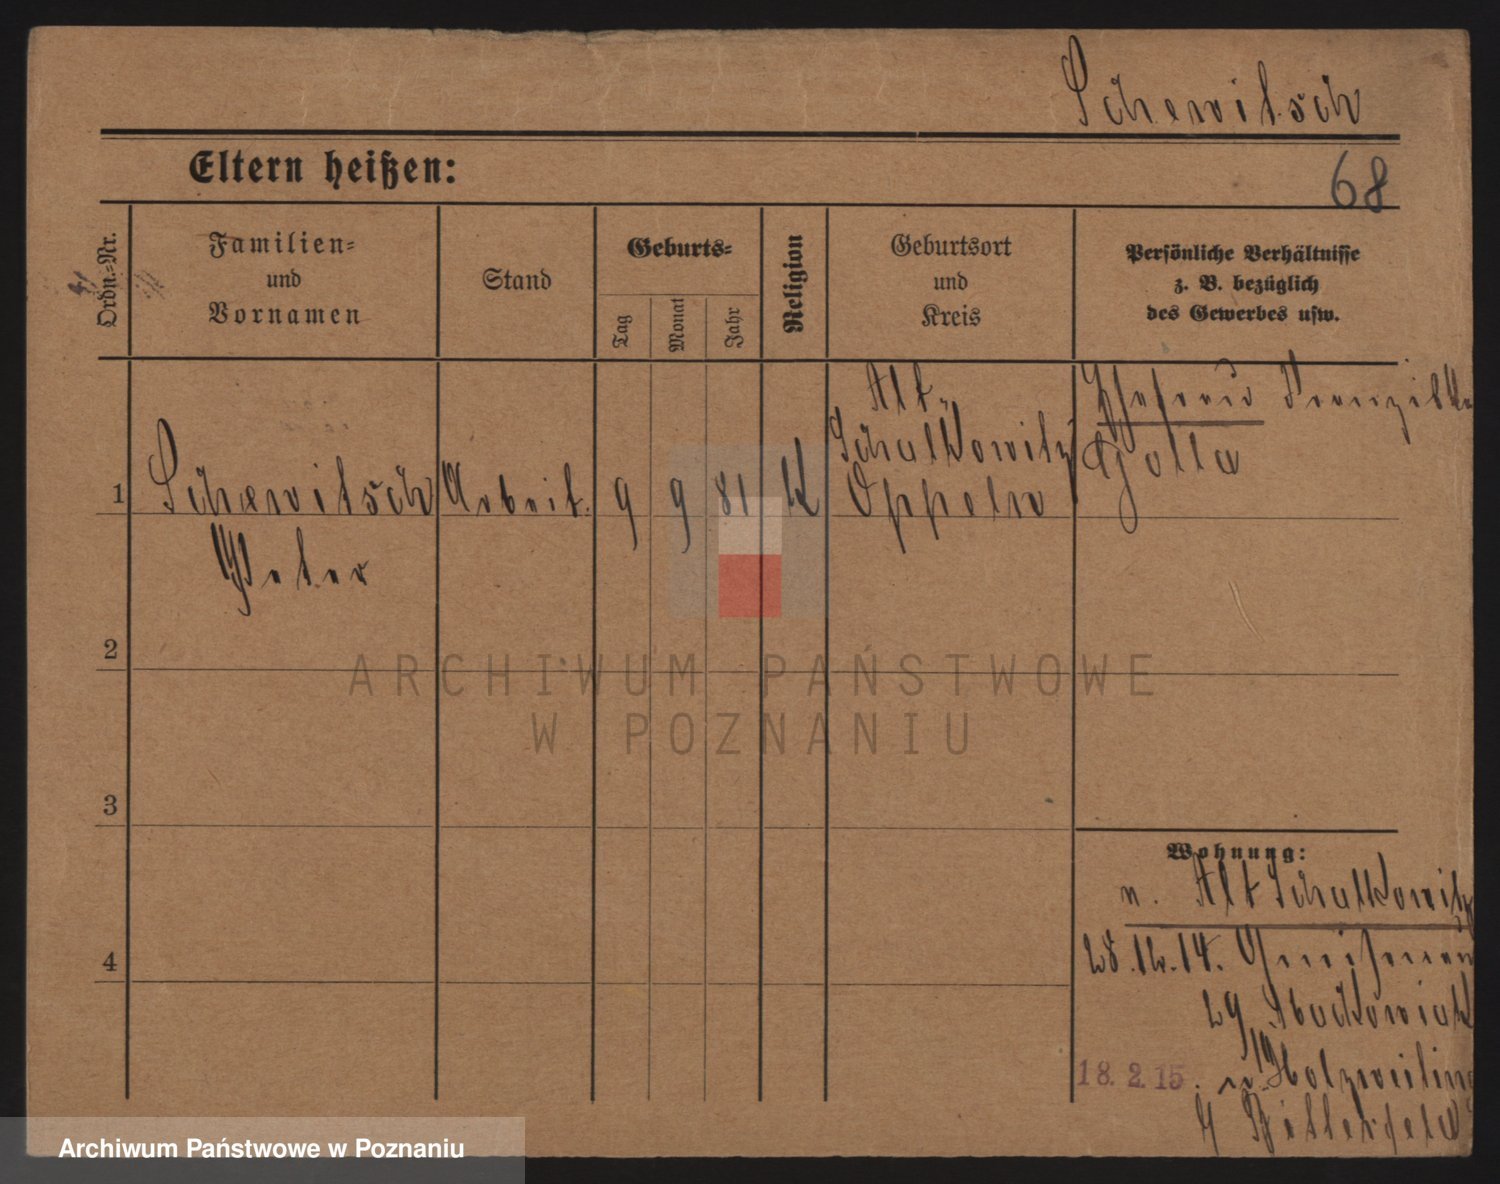 Schewitsch
Eltern heißen:
68
Ordn.-Nr.
Familien-
und
Vornamen
Stand
Geburts-
Tag
Monat
Jahr
Religion
Geburtsort
und
Kreis
Persönliche Verhältnisse
z. B. bezüglich
des Gewerbes usw.
1
Schewitsch
Peter
Arbeit.
9
9
81
K
Alt-
Schalkowitz
Oppeln
Ehefrau Franziska
Golla
2
3
4
Wohnung:
n. Alt Schalkowitz
28.12.14. Gneisenau
29
18.2.15. n. Holzweißig
Bitterfeld
ARCHIWUM PAŃSTWOWE
W POZNANIU
Archiwum Państwowe w Poznaniu